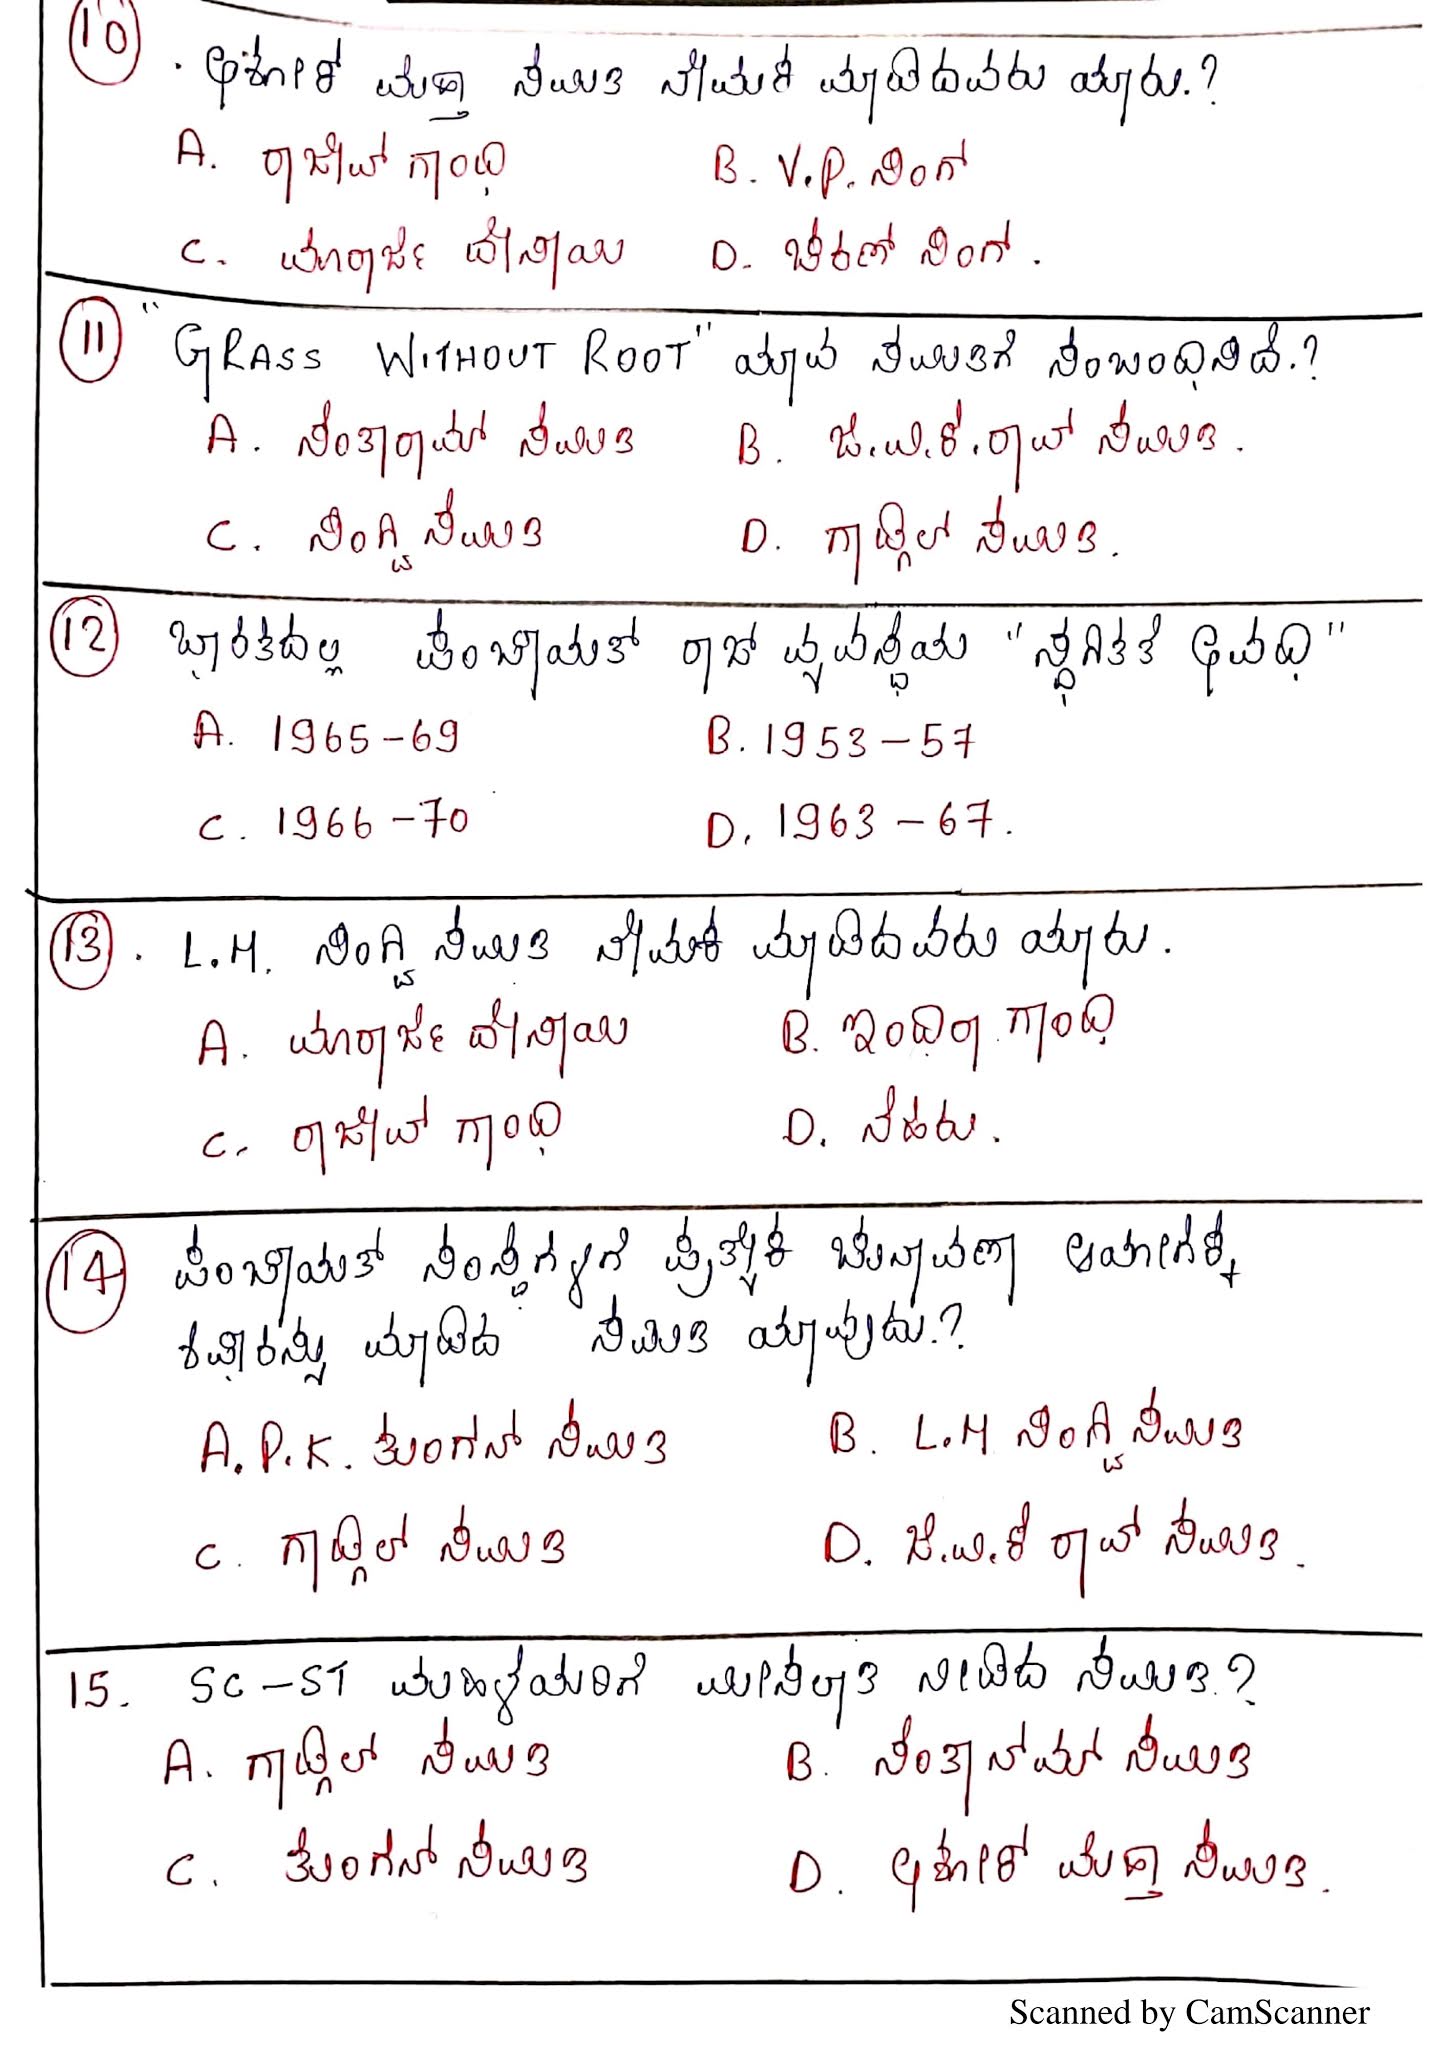 10
. ಅಶೋಕ ಮೆಹ್ತಾ ಸಮಿತಿ ನೇಮಕ ಮಾಡಿದವರು ಯಾರು.?
A. ರಾಜೀವ್ ಗಾಂಧಿ B. V.P. ಸಿಂಗ್
C. ಮೂರಾರ್ಜಿ ದೇಸಾಯಿ D. ಚರಣ್ ಸಿಂಗ್.
11 "GRASS WITHOUT ROOT" ಯಾವ ಸಮಿತಿಗೆ ಸಂಬಂಧಿಸಿದೆ.?
A. ಸಂತಾರಾಮ್ ಸಮಿತಿ B. ಜಿ.ವಿ.ಕೆ.ರಾವ್ ಸಮಿತಿ.
C. ಸಿಂಗ್ವಿ ಸಮಿತಿ D. ಗಾಡ್ಗಿಲ್ ಸಮಿತಿ.
12 ಭಾರತದಲ್ಲಿ ಪಂಚಾಯತ್ ರಾಜ್ ವ್ಯವಸ್ಥೆಯ "ಸ್ಥಗಿತತೆ ಅವಧಿ"
A. 1965-69 B. 1953-57
C. 1966-70 D. 1963-67.
13. L.M. ಸಿಂಗ್ವಿ ಸಮಿತಿ ನೇಮಕ ಮಾಡಿದವರು ಯಾರು.
A. ಮೂರಾರ್ಜಿ ದೇಸಾಯಿ B. ಇಂದಿರಾ ಗಾಂಧಿ
C. ರಾಜೀವ್ ಗಾಂಧಿ D. ನೆಹರು.
14 ಪಂಚಾಯತ್ ಸಂಸ್ಥೆಗಳಿಗೆ ಪ್ರತ್ಯೇಕ ಚುನಾವಣಾ ಆಯೋಗಕ್ಕೆ
ಶಿಫಾರಸ್ಸು ಮಾಡಿದ ಸಮಿತಿ ಯಾವುದು.?
A. P.K. ತುಂಗನ್ ಸಮಿತಿ B. L.M ಸಿಂಗ್ವಿ ಸಮಿತಿ
C. ಗಾಡ್ಗಿಲ್ ಸಮಿತಿ D. ಜಿ.ವಿ.ಕೆ ರಾವ್ ಸಮಿತಿ.
15. SC-ST ಮಹಿಳೆಯರಿಗೆ ಮೀಸಲಾತಿ ನೀಡಿದ ಸಮಿತಿ.?
A. ಗಾಡ್ಗಿಲ್ ಸಮಿತಿ B. ಸಂತಾನ್ಮಮ್ ಸಮಿತಿ
C. ತುಂಗನ್ ಸಮಿತಿ D. ಅಶೋಕ ಮೆಹ್ತಾ ಸಮಿತಿ.
Scanned by CamScanner